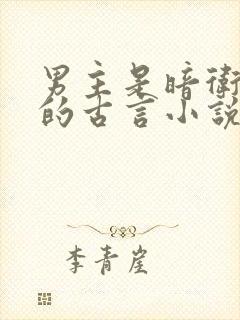 男主是暗衛
的古言小說
李青崖